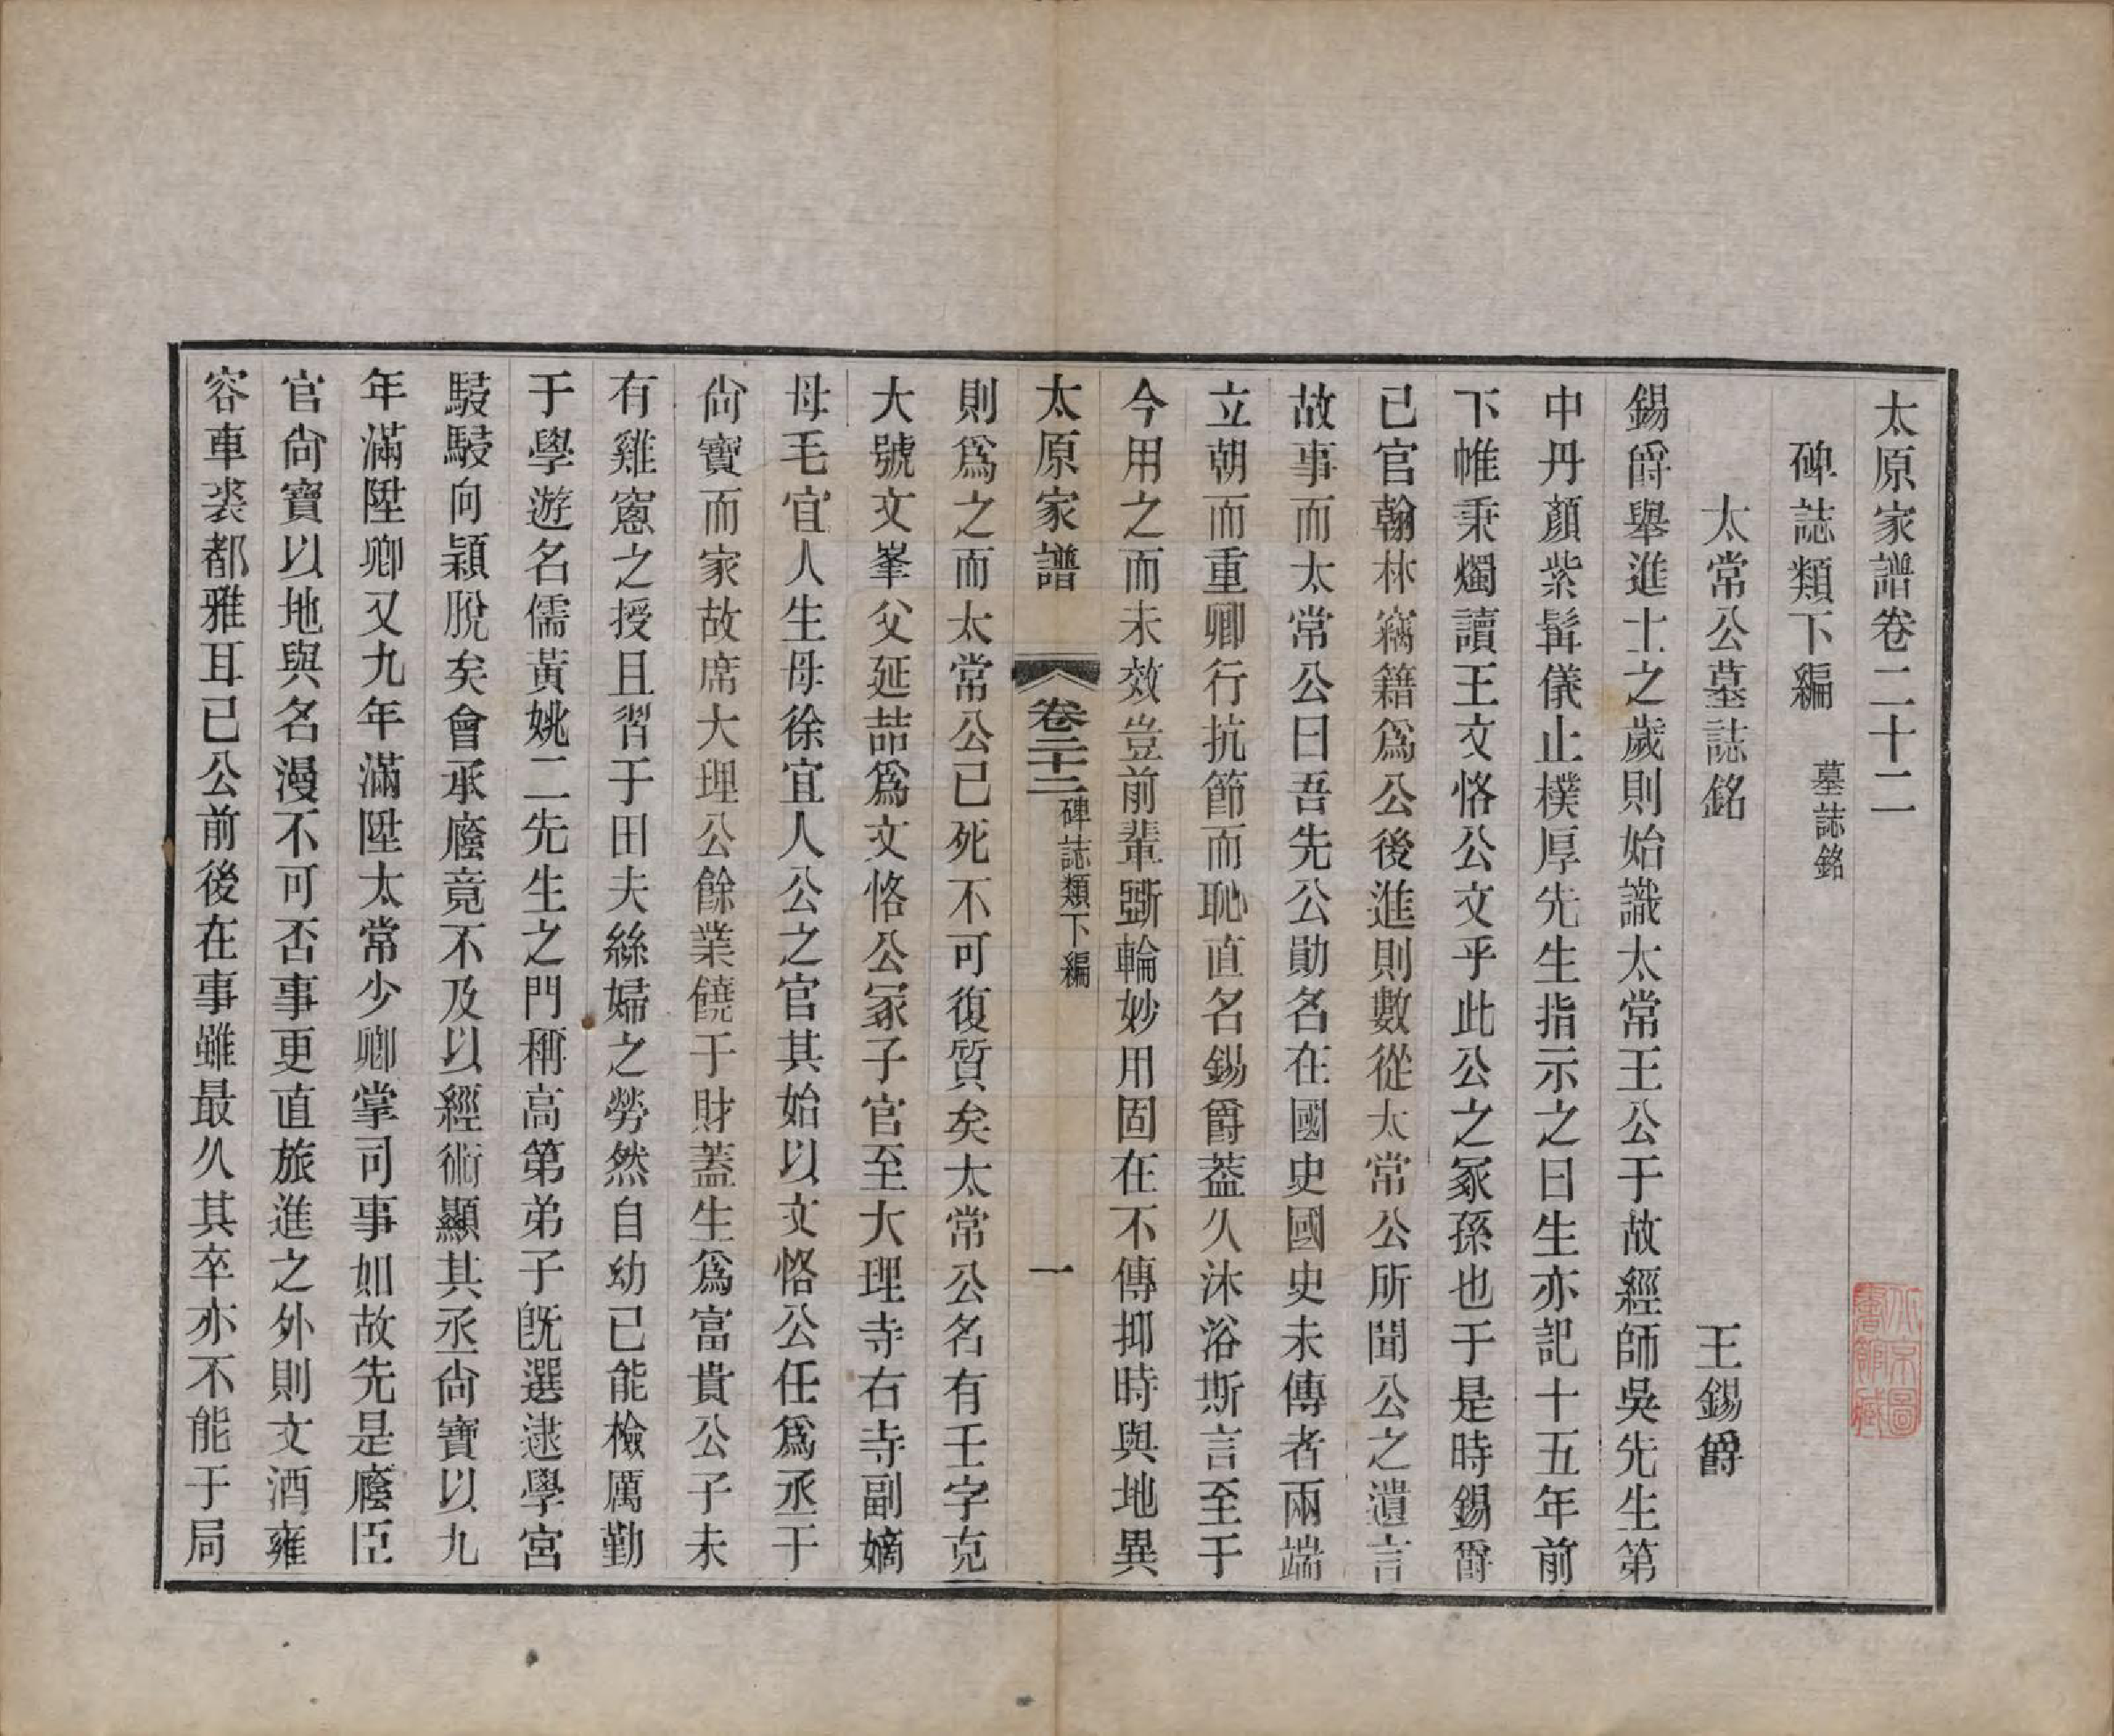 太原家譜卷二十二
碑誌類下編　墓誌銘
太常公墓誌銘　王錫爵
錫爵舉進士之歲則始識太常王公于故經師吳先生第
中丹顏紫髯儀止樸厚先生指示之曰生亦記十五年前
下帷秉燭讀王文恪公文乎此公之冢孫也于是時錫爵
已官翰林竊籍爲公後進則數從太常公所聞公之遺言
故事而太常公曰吾先公勛名在國史國史未傳者兩端
立朝而重卿行抗節而恥直名錫爵葢久沐浴斯言至于
今用之而未效豈前輩斲輪妙用固在不傳抑時與地異
太原家譜　卷二十二　碑誌類下編　一
則爲之而太常公已死不可復質矣太常公名有壬字克
大號文峯父延喆爲文恪公冢子官至大理寺右寺副嫡
母毛宜人生母徐宜人公之官其始以文恪公任爲丞于
尙寶而家故席大理公餘業饒于財蓋生爲富貴公子未
有雞窻之授且習于田夫絲婦之勞然自幼已能檢厲勤
于學遊名儒黃姚二先生之門稱高第弟子旣選逮學宮
駸駸向穎脫矣會承廕竟不及以經術顯其丞尙寶以九
年滿陞卿又九年滿陞太常少卿掌司事如故先是廕臣
官尙寶以地與名漫不可否事更直旅進之外則文酒雍
容車裘都雅耳已公前後在事雖最久其卒亦不能于局